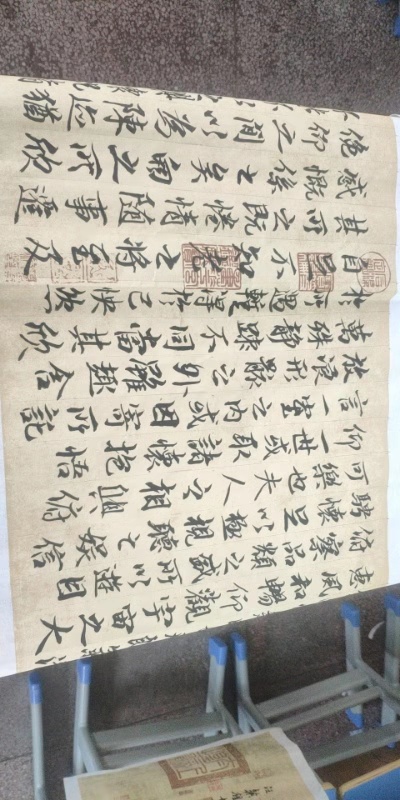 惠風和暢仰觀宇宙之大
俯察品類之盛所以遊目
騁懷足以極視聽之娛信
可樂也夫人之相與俯
仰一世或取諸懷抱悟
言一室之內或因寄所託
放浪形骸之外雖趣舍
萬殊靜躁不同當其欣
於所遇暫得於己快然
自足不知老之將至及
其所之既惓情隨事遷
感慨係之矣向之所欣
俛仰之閒以為陳迹猶